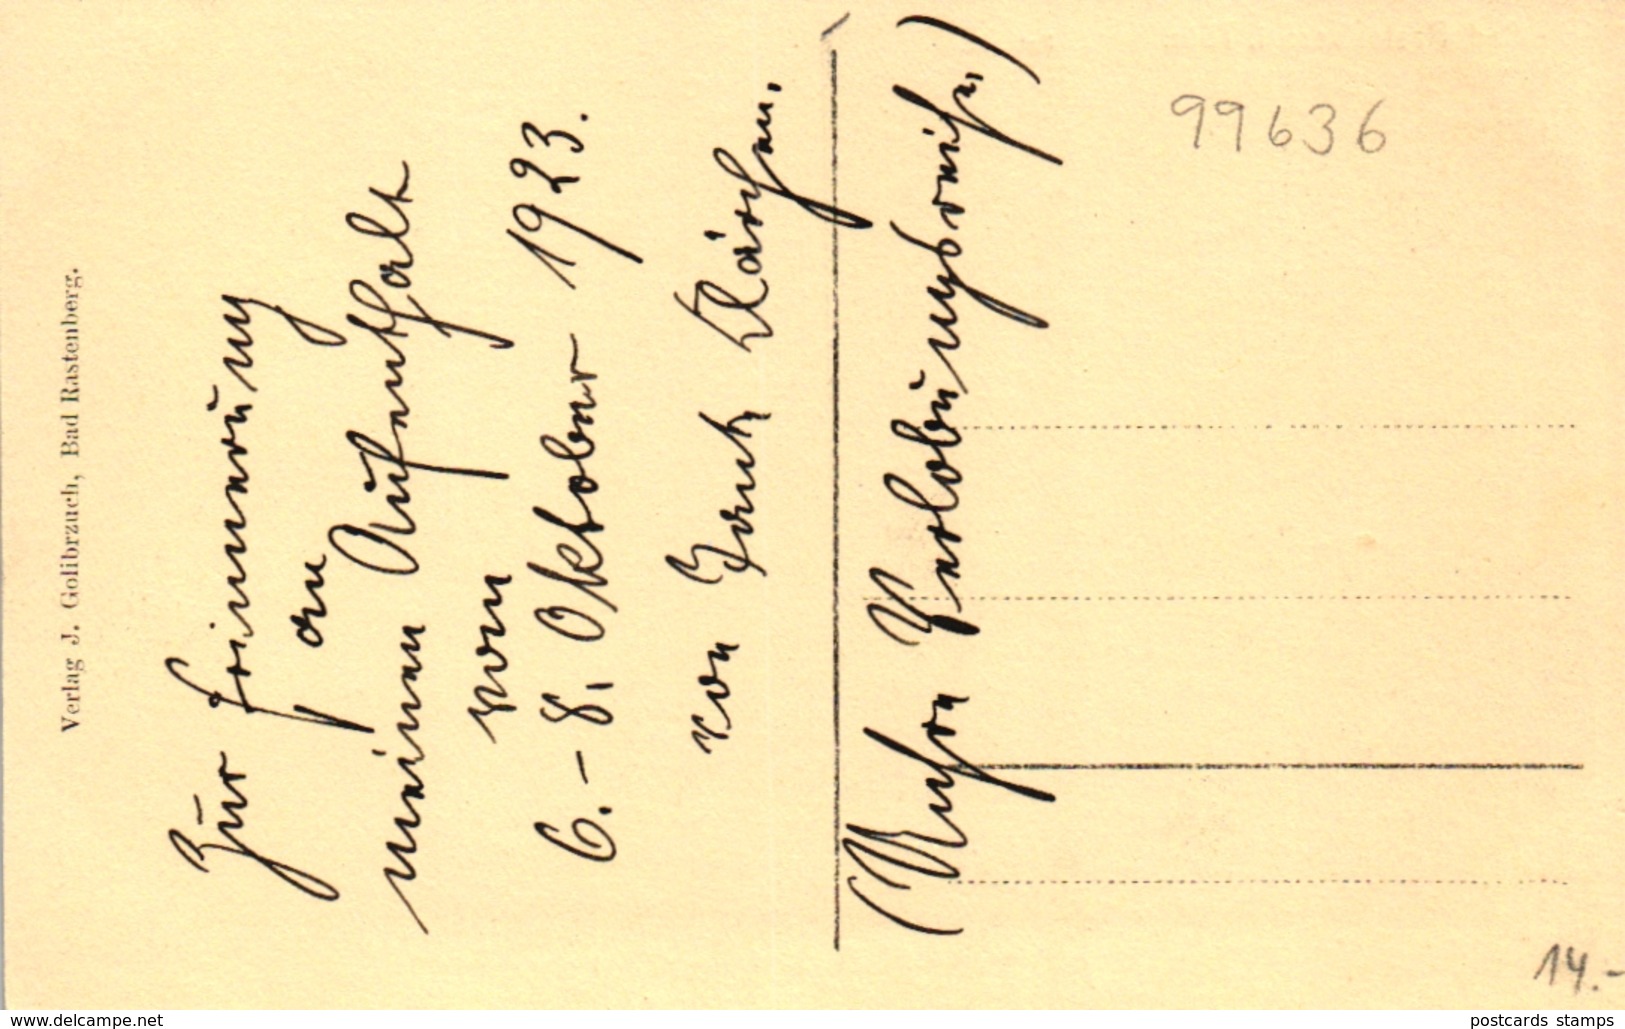 Verlag J. Golibrzuch, Bad Rastenberg.
Zur Erinnerung
an
meinen Aufenthalt
vom
6.-8. Oktober 1923.
von Klärchen.
( Verlobungsreise)
99636
14.-
www.delcampe.net
postcards stamps